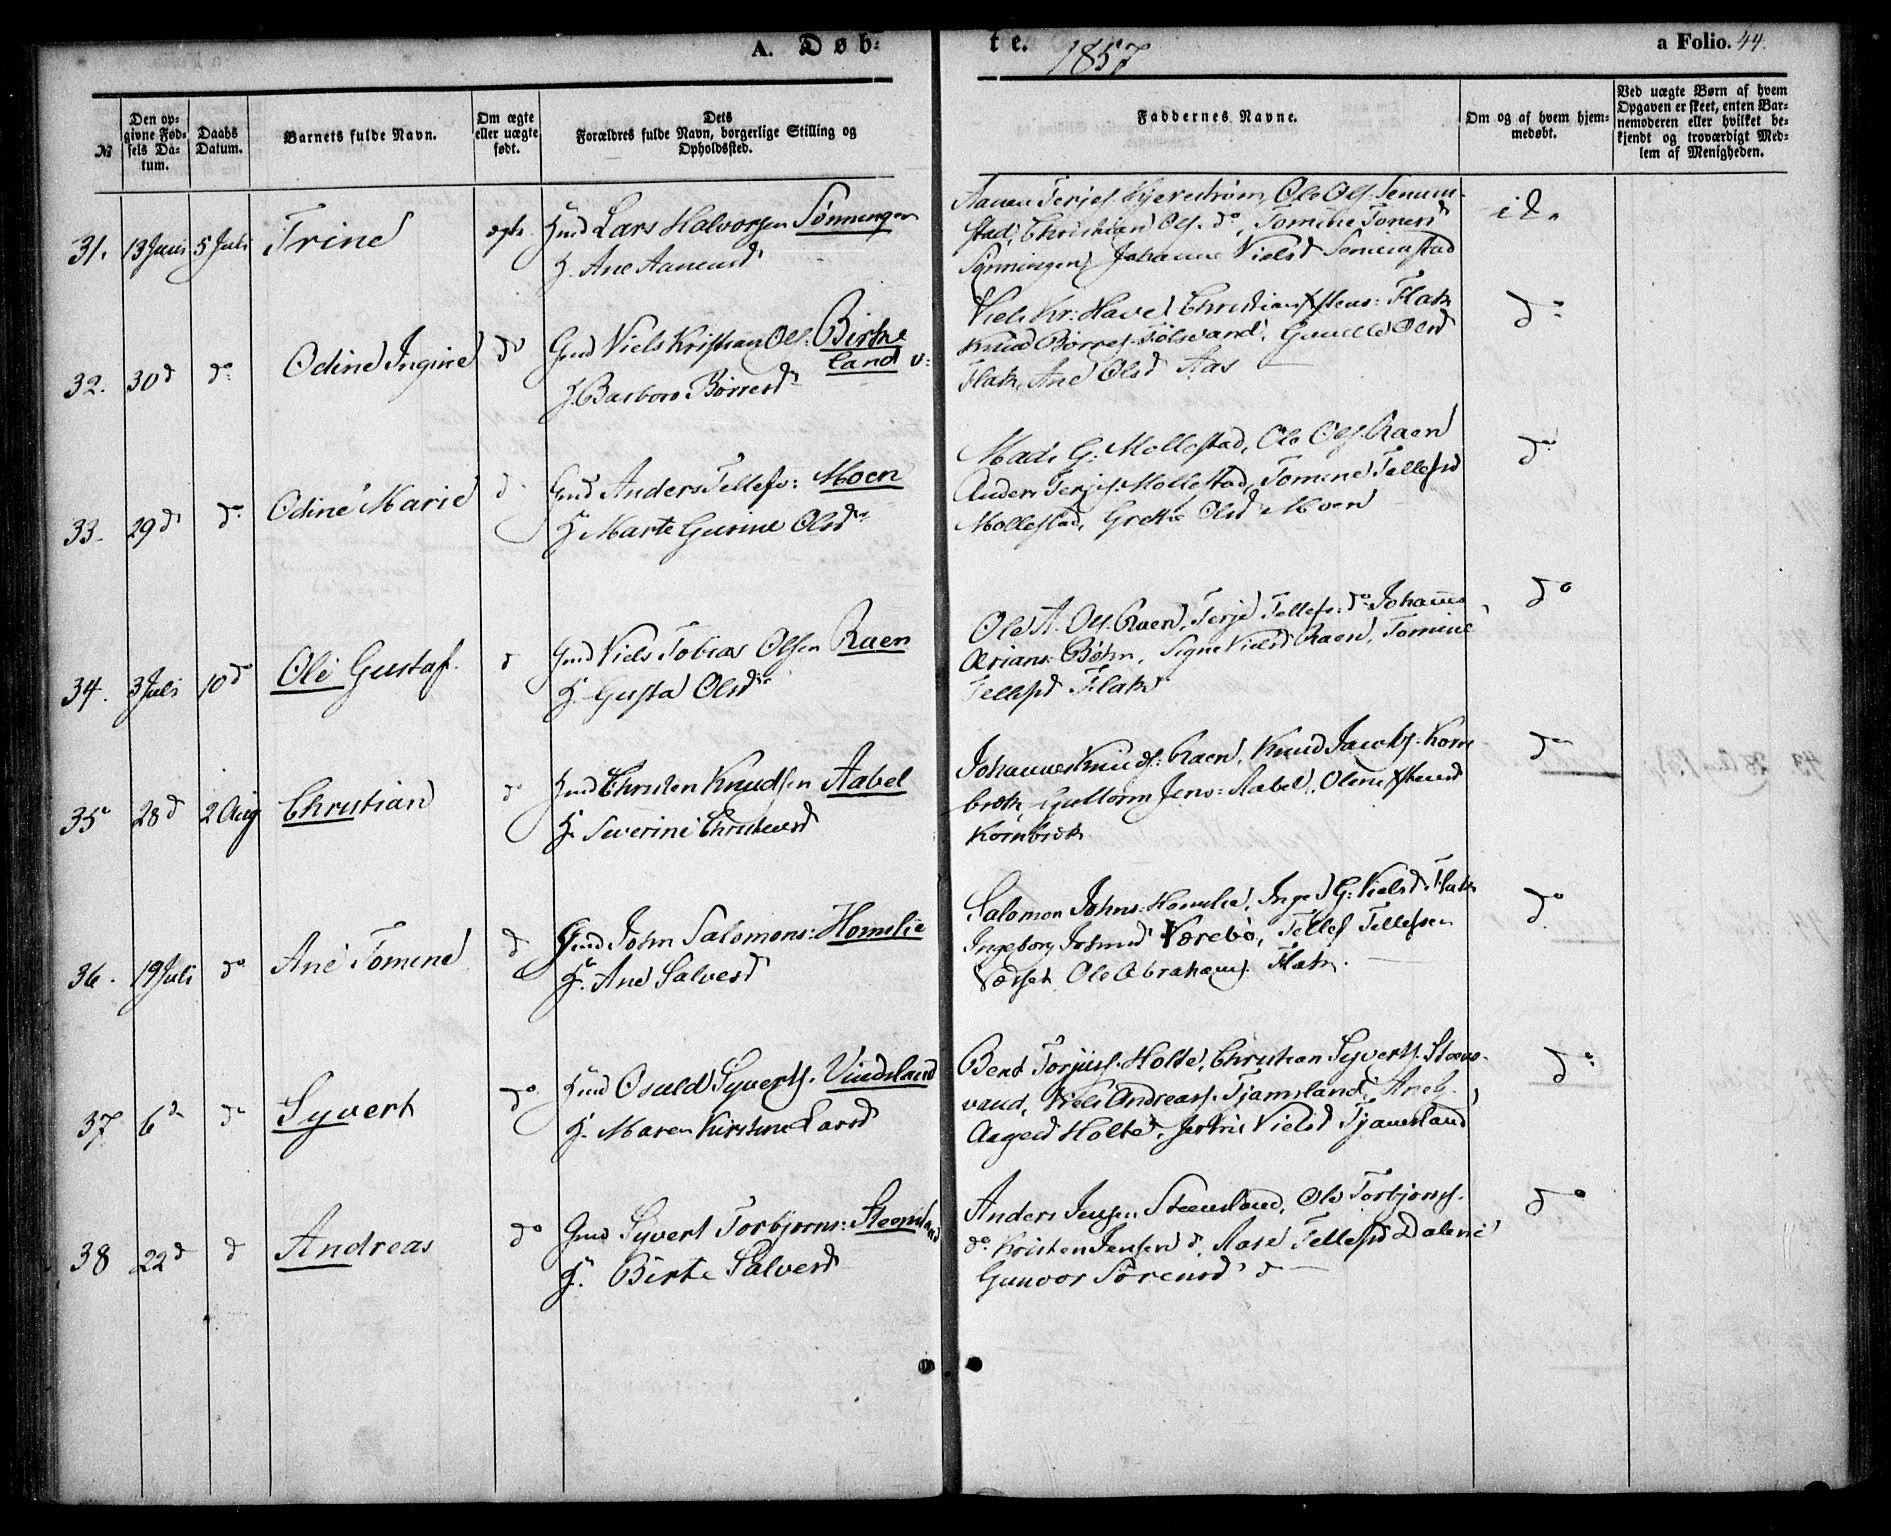 A. Døb-
te.
1857
a Folio. 44.
№
Den op-
givne Fød-
sels Da-
tum.
Daabs
Datum.
Barnets fulde Navn.
Om ægte
eller uægte
født.
Dets
Forældres fulde Navn, borgerlige Stilling og
Opholdssted.
Faddernes Navne.
Om og af hvem hjem-
medøbt.
Ved uægte Børn af hvem
Opgaven er skeet, enten Bar-
nemoderen eller hvilket be-
kjendt og troværdigt Med-
lem af Menigheden.
31. 13 Juni 5 Juli Trine ægte. Hmd Lars Halvorsen Sønningen
H. Ane Aanensd
Aanen Terjes. Ole Ols.
stad, Christian Ols. do, Tomine Toresd
Sønningen, Johanne Nielsd
id.
32. 30 d do Odine Ingine do Gmd Niels Kristian Ols: Birke
land
H. Barbora Børresd
Niels Kr: Have, Christian Flak
Knud Børres. Gunild Olsd
Flak, Ane Olsd Aas
do
33. 29 d do Odine Marie d Gmd Anders Tellefs: Moen
H. Marte Gurine Olsdr
Mads G: Mollestad, Ole Ols. Raen
Anders Terjes. Mollestad, Tomine Tellefsd
Mollestad, Grethe Olsd Moen
do
34. 3 Juli 10 d Ole Gustaf. d Gmd Niels Tobias Olsen Raen
H. Gusta Olsdr
Ole A. Ols. Raen, Terje Tellefs: do Johanne
Arians: Bøhn, Signe Nielsd Raen, Tomine
Tellefsd Flak
do
35 28 d 2 Aug Christian do Hmd Christen Knudsen Aabel
H. Severine Christensd
Johannes Knuds: Raen, Knud Jacobs. Korn
bræk, Guttorm Jens: Aabel, Oline
Kornbræk
do
36. 19 Juli do Ane Tomine d Gmd John Salomons: Homelie
H. Ane Salvesd
Salomon Johns: Homelie, Inger G: Nielsd Flak
Ingeborg Værebø, Tellef Tellefsen
Ole Abrahams. Flak.
do
37 6 d do Syvert do Hmd Osuld Syverts. Vindsland
H. Maren Kirstine Larsd
Bent Torjus. Holte, Christian Syverts. Steens-
vand, Niels Andreas. Tjamsland,
Aagesd Holte, Nielsd Tjamsland
do
38 22 d d Andreas do Gmd Syvert Torbjorns: Steensland
H. Birte Salvesd
Anders Jensen Steensland, Ole Torbjorns.
do Kristen Jensen d, Aase Tellefsd Dalene
Gunvor Sørensd d
do